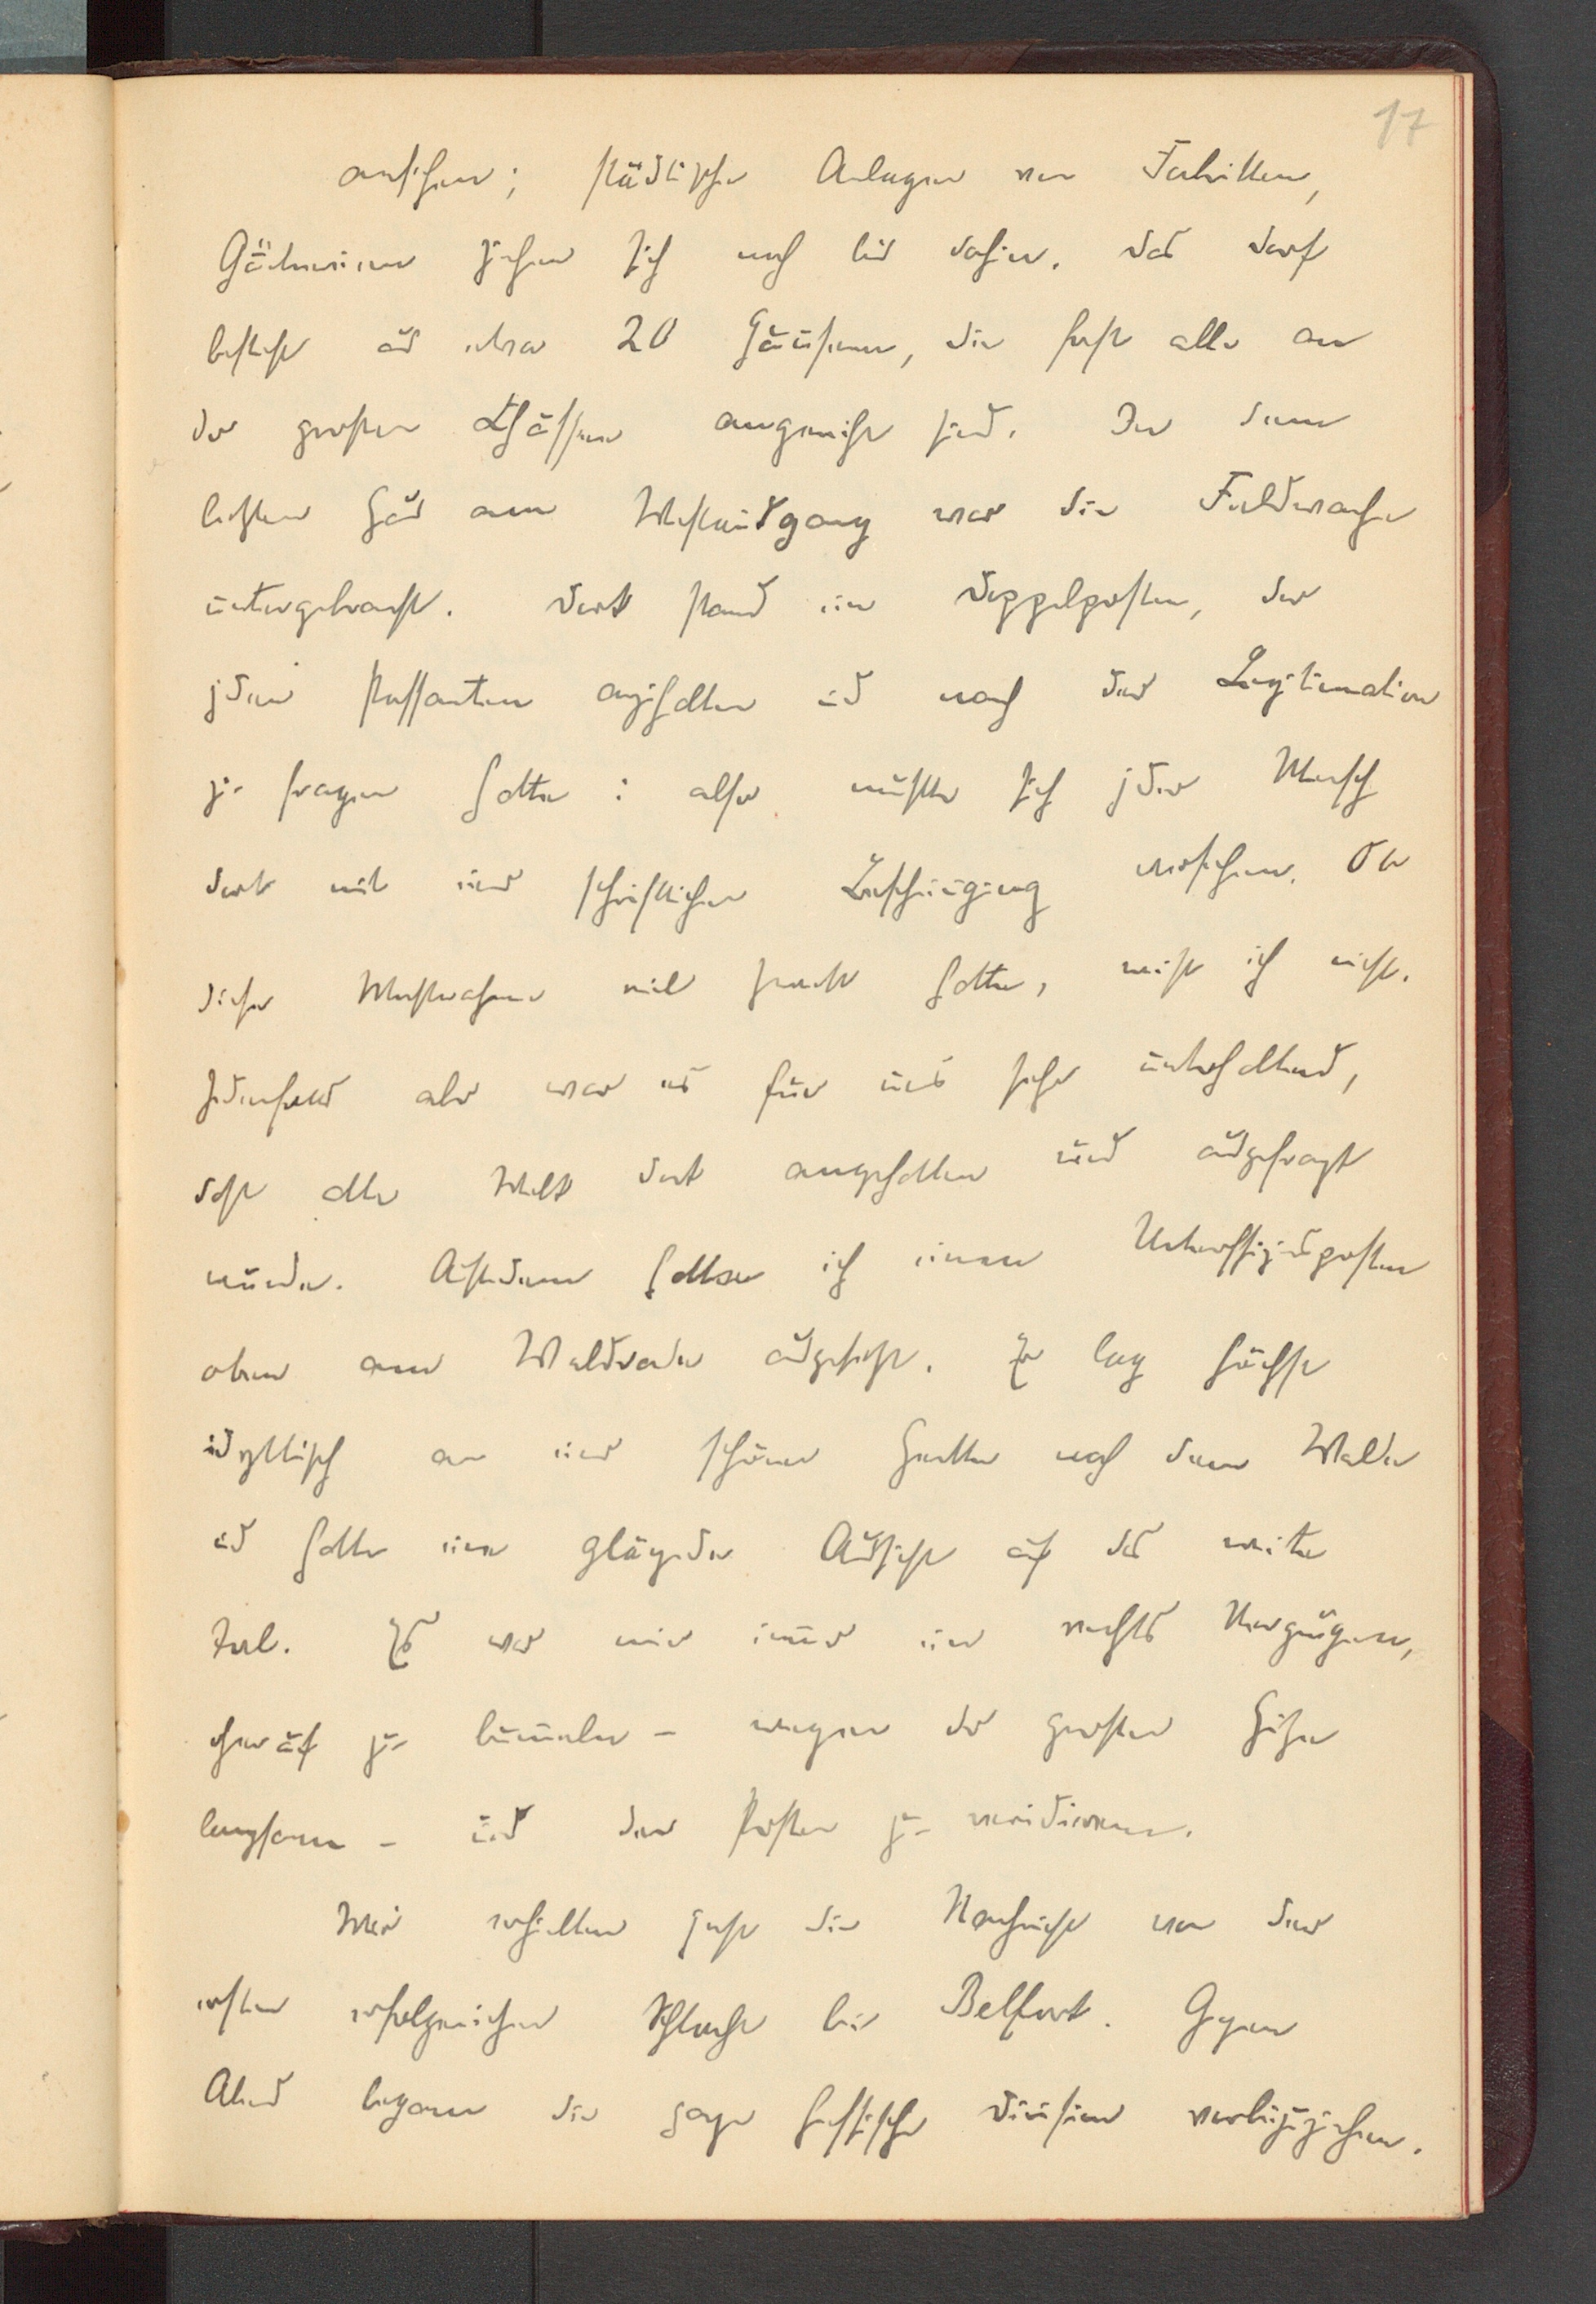 17
ansehen; städtische Anlagen von Fabriken,
Gärtnereien ziehen sich noch bis dahin. Das Dorf
besteht aus etwa 20 Häusern, die fast alle an
der großen Chaussee angereiht sind. In dem
letzten Haus am Westausgang war die Feldwache
untergebracht. Dort stand ein Doppelposten, der
jeden Passanten anzuhalten und nach der Legitimation
zu fragen hatte: also mußte sich jeder Mensch
dort mit einer schriftlichen Bescheinigung versehen. Ob
diese Maßnahme viel Zweck hatte, weiß ich nicht.
Jedenfalls aber war es für uns sehr unterhaltend,
daß alle Welt dort angehalten und ausgefragt
wurde. Außerdem hatten ich einen Unteroffizierposten
oben am Waldrande ausgesetzt. Er lag höchst
idyllisch an einer schönen nach dem Walde
und hatte eine glänzende Aussicht auf das weite
Tal. Es war mir immer ein rechtes Vergnügen,
herauf zu bummeln – wegen der großen Hitze
langsam – und den Posten zu revidieren.
Wir erhielten heute die Nachricht von der
ersten erfolgreichen Schlacht bei Belfort. Gegen
Abend begann die ganze hessische Division vorbeizuziehen.